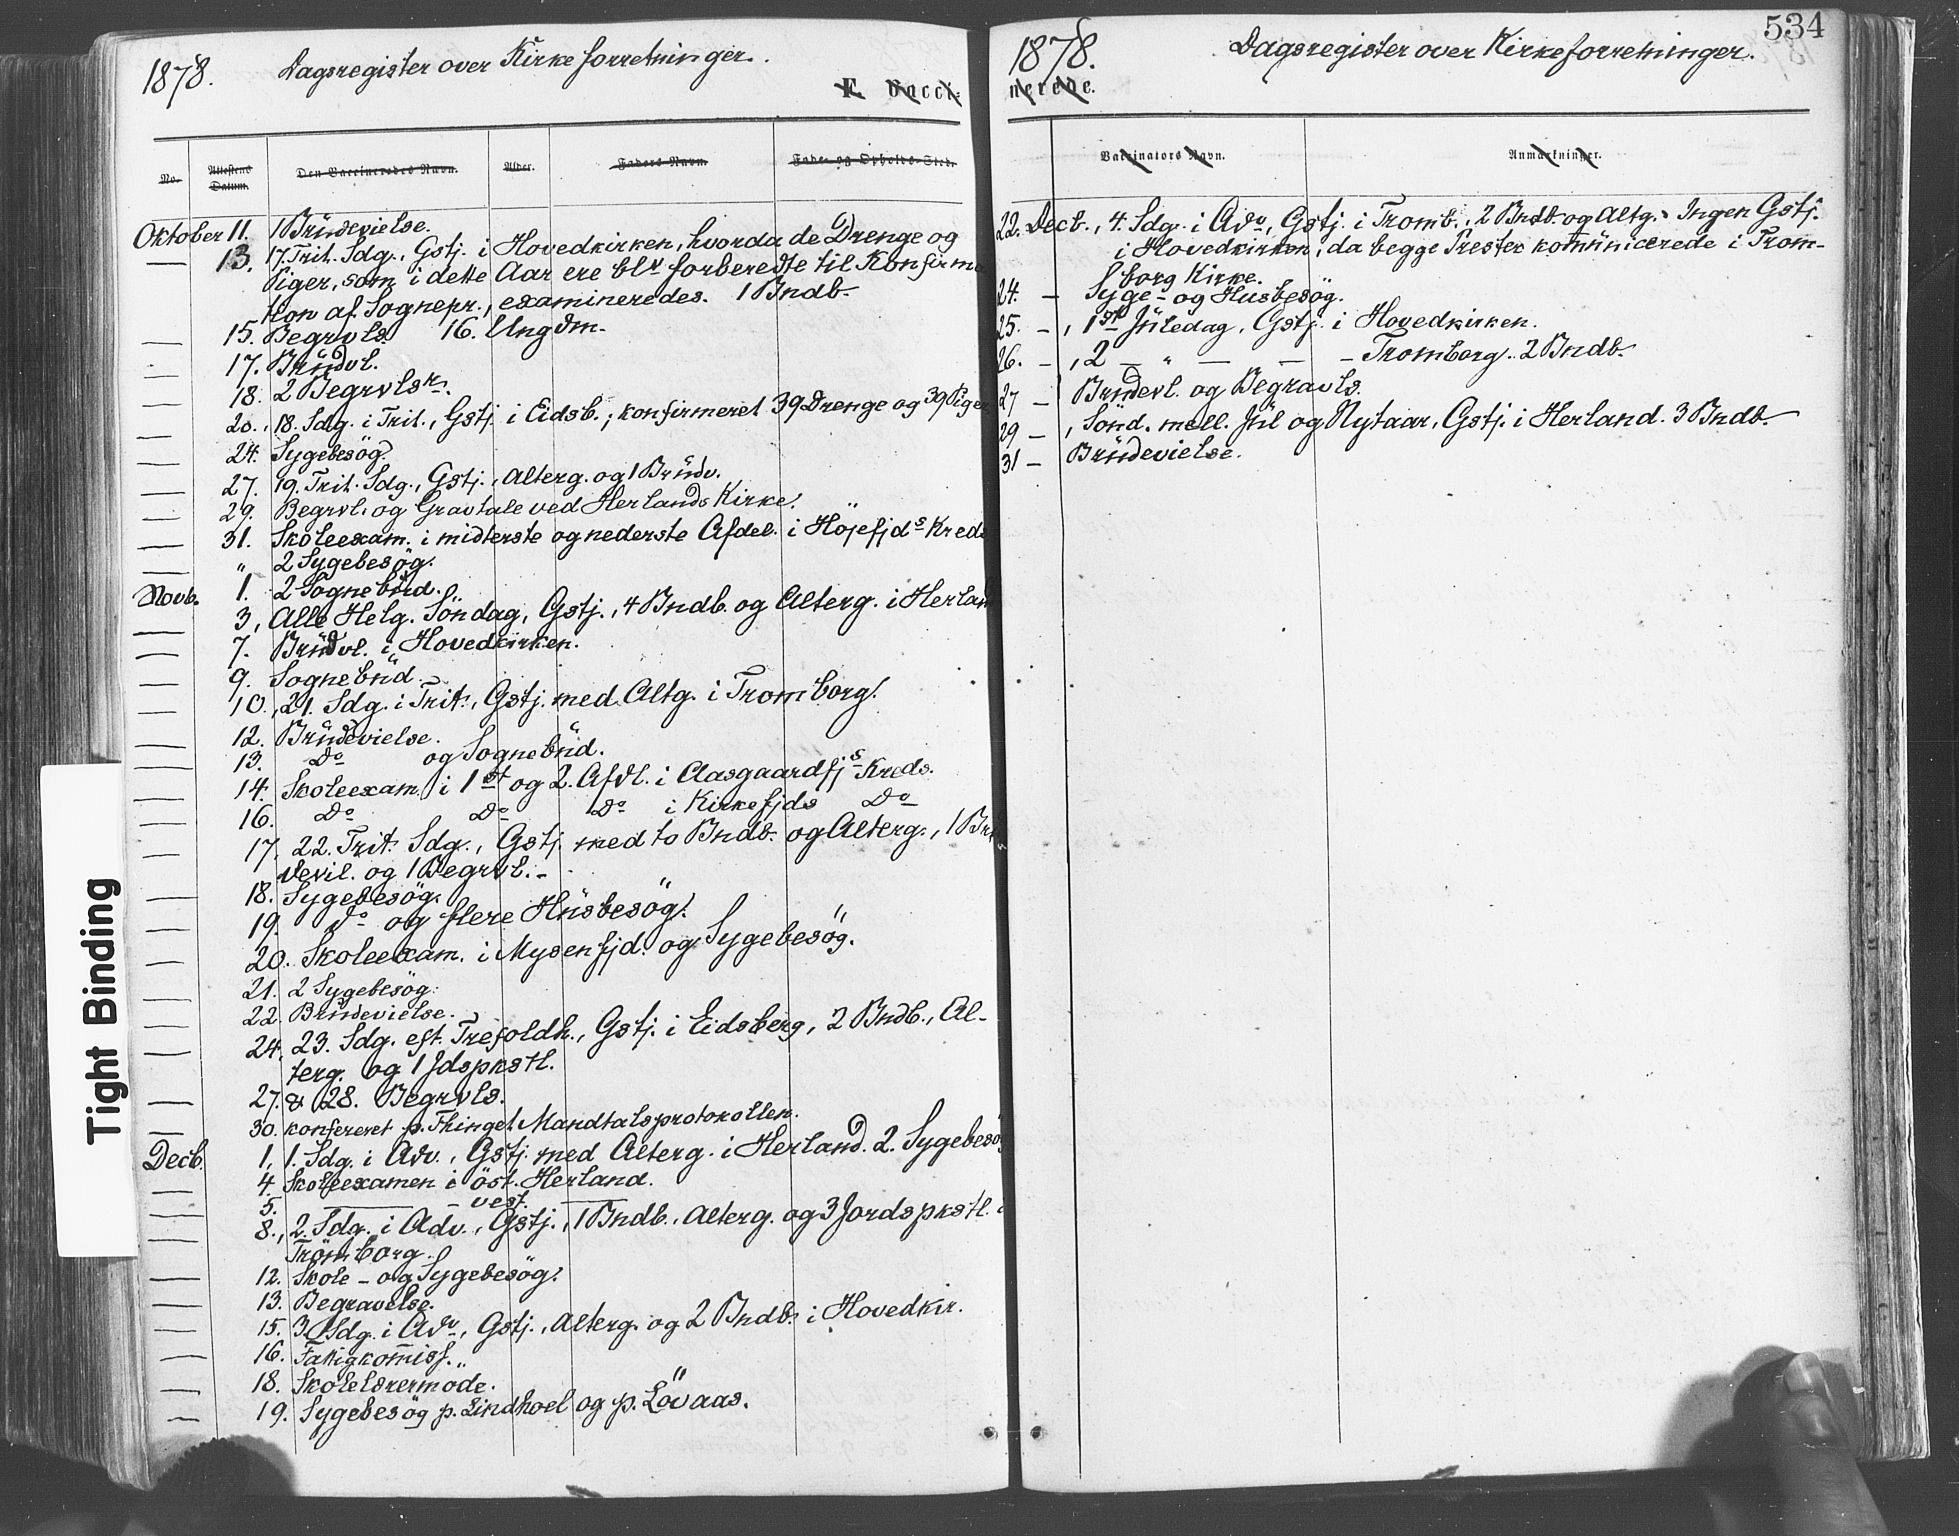 1878. Dagsregister over Kirkeforretninger.
E. Vacci-
No. Attestens Datum. Den Vaccineredes Navn. Alder. Faders Navn. Føde- og Opholds-Sted.
Oktober 11. 1 Brüdevielse.
— 13. 17. Trit. Sdg., Gstj. i Hovedkirken, hvorda de Drenge og
Piger, som i dette Aar ere blv forberedte til Konfirma
tion af Sognepr., examineredes. 1 Bndb.
— 15. Begrvls. 16. Ungdm.
— 17. Brüdvl.
— 18. 2 Begrvlsr.
— 20., 18. Sdg. i Trit., Gstj. i Eidsb.; konfirmeret 39 Drenge og 39 Piger
— 24. Sygebesög.
— 27. 19. Trit. Sdg., Gstj., Alterg. og 1 Brüdv.
— 29. Begrvl. og Gravtale ved Herlands Kirke.
— 31. Skoleexam. i midterste og nederste Afdel. i Höjefjds Kreds
— " 2 Sygebesög.
Novb. 1. 2 Sognebüd.
— 3, Alle Helg. Söndag, Gstj., 4 Bndb. og Alterg. i Herlan
— 7. Brüdvl. i Hovedkirken.
— 9. Sognebüd.
— 10., 21. Sdg. i Trit., Gstj. med Altg. i Tromborg.
— 12. Brüdevielse.
— 13. Do og Sognebüd.
— 14. Skoleexam. i 1st og 2. Afdl. i Aasgaardfjs Kreds.
— 16. Do Do Do i Kirkefjds Do
— 17. 22. Trit. Sdg., Gstj. med to Bndb. og Alterg., 1 Brü
devil. og 1 Begrvl.
— 18. Sygebesög.
— 19. do og flere Hüsbesög.
— 20. Skoleexam. i Mysenfjd. og Sygebesög.
— 21. 2 Sygebesög.
— 22. Brüdevielse.
— 24. 23. Sdg. eft. Trefoldh., Gstj. i Eidsberg, 2 Bndb., Al-
terg. og 1 Jdspkstl.
— 27. & 28. Begrvls.
— 30. konfereret p. Thinget Mandtalsprotokollen.
Decb. 1, 1. Sdg. i Adv., Gstj. med Alterg. i Herland. 2. Sygebesö
— 4. Skoleexamen i öst. Herland.
— 5. — — vest. —
— 8., 2. Sdg. i Adv., Gstj., 1 Bndb., Alterg. og 3 Jordspkstl. i
Trömborg.
— 12. Skole- og Sygebesög.
— 13. Begravelse.
— 15. 3 Sdg. i Adv, Gstj., Alterg. og 2 Bndb. i Hovedkir.
— 16. Fattigkomiss.
— 18. Skolelærermøde.
— 19. Sygebesög p. Lindhoel og p. Lövaas.
Tight Binding
534
1878. Dagsregister over Kirkeforretninger.
nerede.
Vaccinators Navn. Anmærkninger.
22. Decb., 4. Sdg. i Adv, Gstj. i Tromb., 2 Bndb. og Altg. Ingen Gstj.
i Hovedkirken, da begge Prester kommünicerede i Trom-
borg Kirke.
24. — Syge- og Husbesög.
25. —, 1st Jüledag, Gstj. i Hovedkirken.
26. —, 2 — " — — — Tromborg. 2 Bndb.
27 — Brüdevl. og Begravls.
29 —, Sönd. mell. Jül og Nytaar, Gstj. i Herland. 3 Bndb.
31 — Brüdevielse.